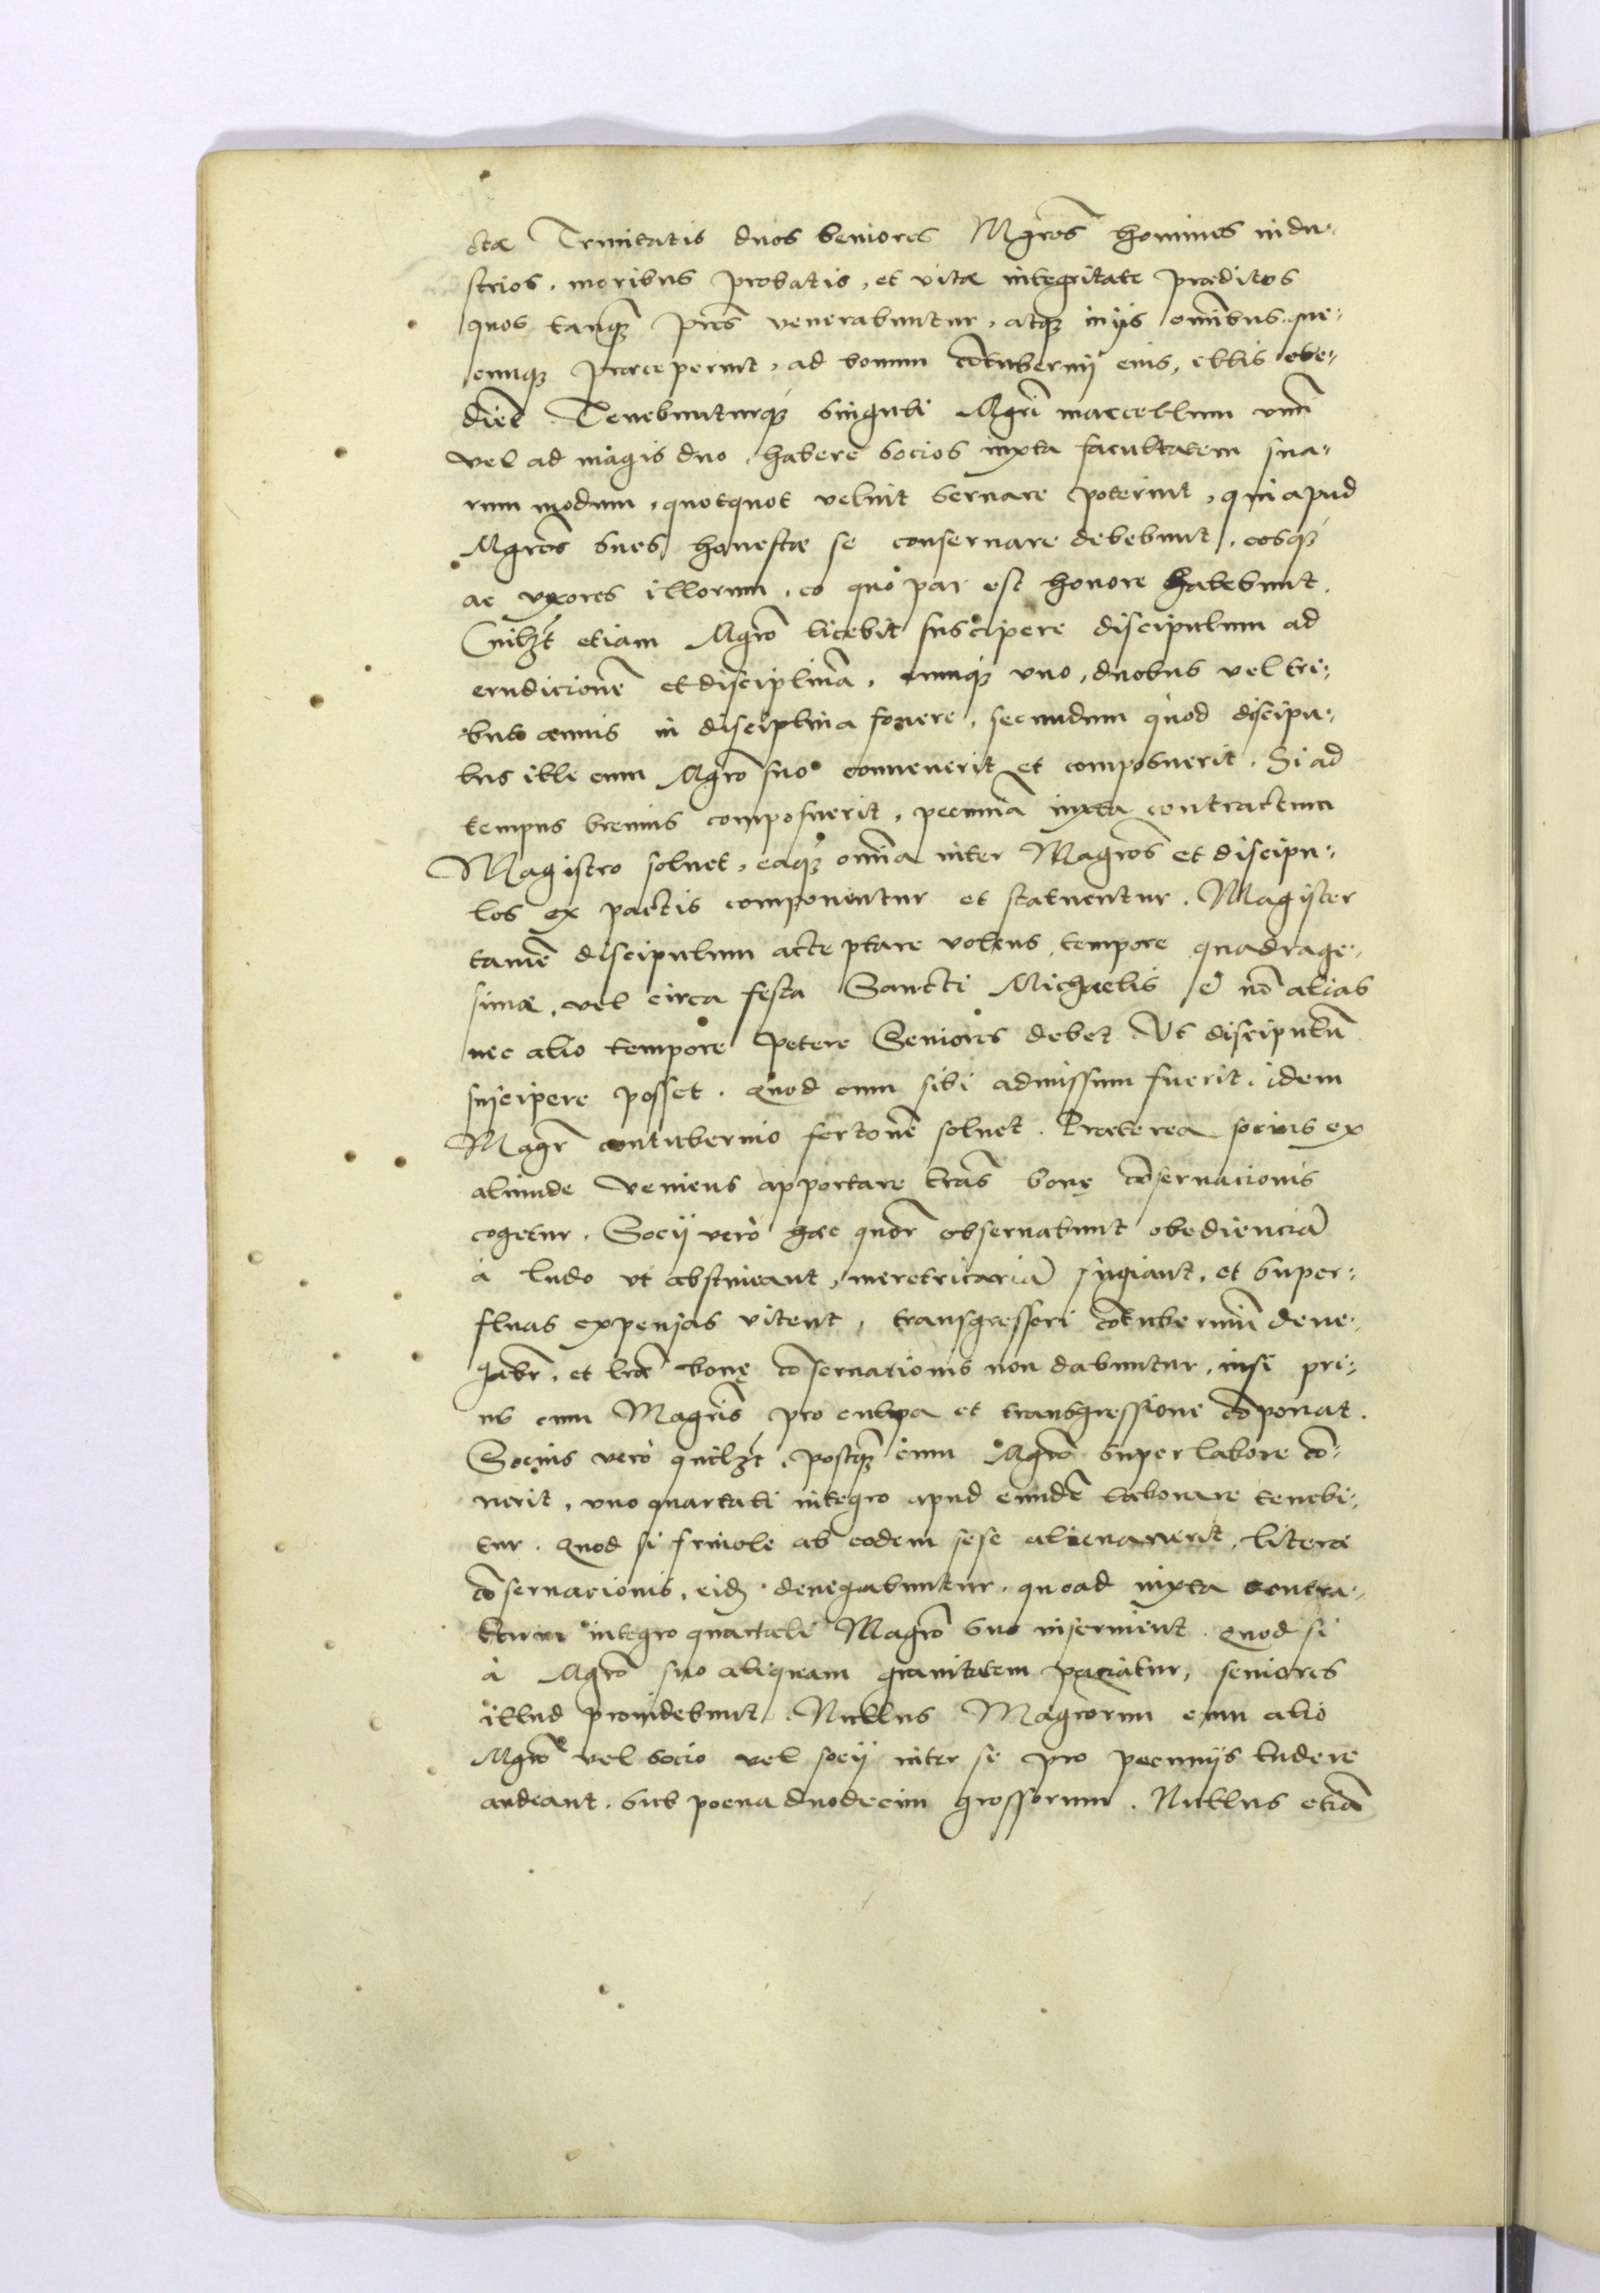 ctæ Trinitatis duos seniores Mgros̄ homines indu⸗
strios, moribus probatis, et vitæ integritate præditos
quos tanq̄ꝫ pr̄es venerabuntur, atqꝫ in ijs om̄ibus
cunqꝫ præceperint, ad bonum cōtubernij eius, illis obe⸗
diēt. Tenebunturqꝫ singuli Mgri maccellum unū
vel ad magis duo, habere socios iuxta facultatem sua⸗
rum modum, quotquot velint servare poterint, qui apud
Mgros̄ suos honeste se conservare debebunt, eosqꝫ
ac uxores illorum, eo quo par est honore habebunt.
Cuilꝫt etiam Mgrō licebit suscipere discipulum ad
erudicionē et disciplinā, eumqꝫ uno, duobus vel tri⸗
bus annis in disciplina fovere, secundum quod discipu⸗
lus ille cum Mgrō suo convenerit et composuerit. Si ad
tempus brevius composuerit, pecuniā iuxta contractum
Magistro solvet, eaqꝫ omīa inter Magros̄ et discipu⸗
los ex pactis componentur et statuentur. Magister
tamē discipulum acceptare volens, tempore quadrage⸗
simæ, vel circa festa Sancti Michaelis et nō alias
nec alio tempore petere Seniores debet Ut discipulū
suscipere posset. Quod cum sibi admissum fuerit, idem
Magr̄ contubernio fertonē solvet. Præterea socius ex
aliunde veniens apportare lr̄as bonę cōservacionis
cogetur. Socij verò hæc quor̄ observabunt obedienciā
à ludo ut abstineant, meretricariā fugiant, et super⸗
fluas expensas vitent, transgressori cōtuberniū dene⸗
gabr̄, et lr̄æ bonę cōservationis non dabuntur, nisi pri⸗
us cum Magris̄ pro culpa et transgressione cōponat.
Socius verò quilꝫt, postqꝫ cum Mgrō super labore cō⸗
nerit, uno quartali integro apud eundē laborare tenebi⸗
tur. Quod si frivole ab eodem sese alienaverit, literæ
cōservationis, eidꝫ denegabuntur, quoad iuxta contra⸗
ctum integro quartali Magrō suo inserviēnt. Quod si
à Mgrō suo aliquam gravitatem paciatur, seniores
illud providebunt. Nullus Magrorum cum alio
Mgrō vel socio vel socij inter se pro pecunijs ludere
audeant, sub poena duodecim grossorum. Nullus etiā